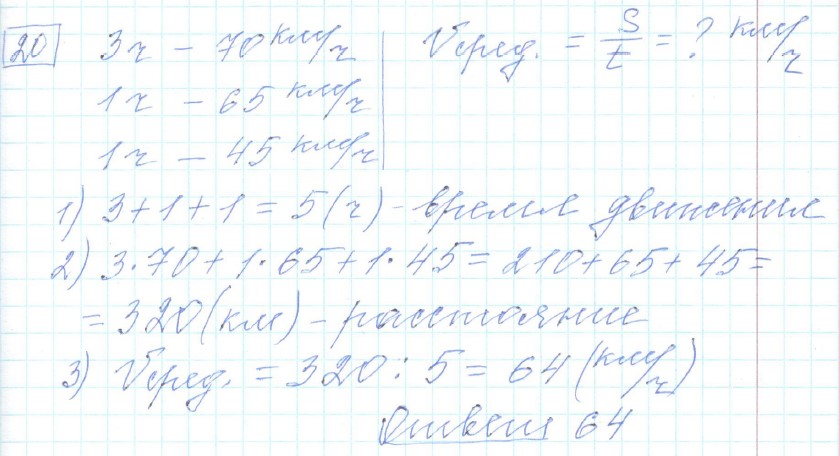 20 3ч – 70 км/ч Vсред. = S/t = ? км/ч
1ч – 65 км/ч
1ч – 45 км/ч
1) 3+1+1 = 5(ч) – время движения
2) 3·70+1·65+1·45 = 210+65+45 =
= 320(км) – расстояние
3) Vсред. = 320 : 5 = 64 (км/ч)
Ответ 64